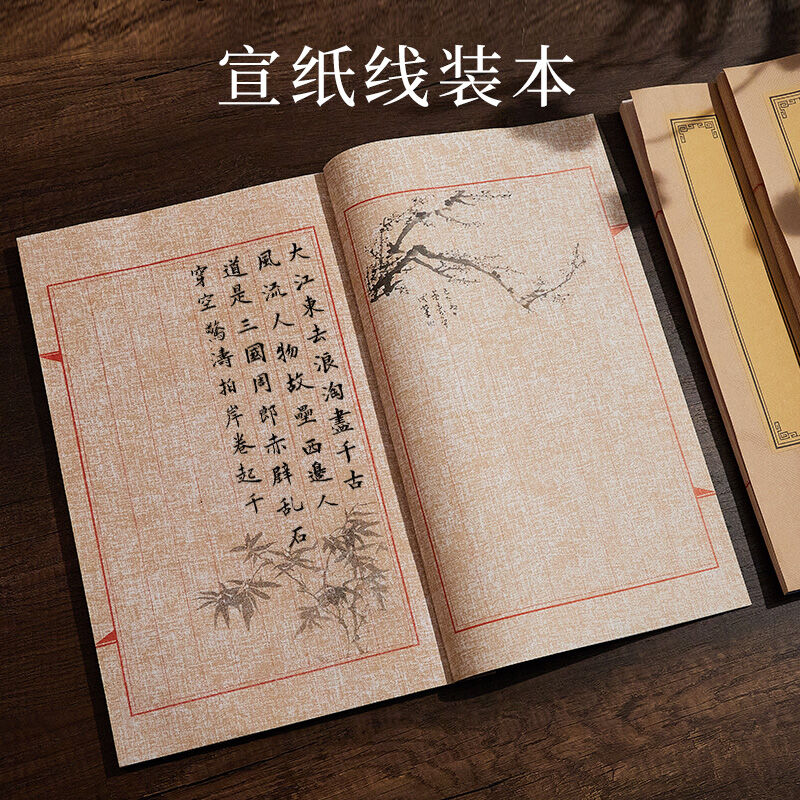 宣纸线装本
大江東去浪淘盡千古
風流人物故壘西邊人
道是三國周郎赤壁乱石
穿空驚濤拍岸卷起千